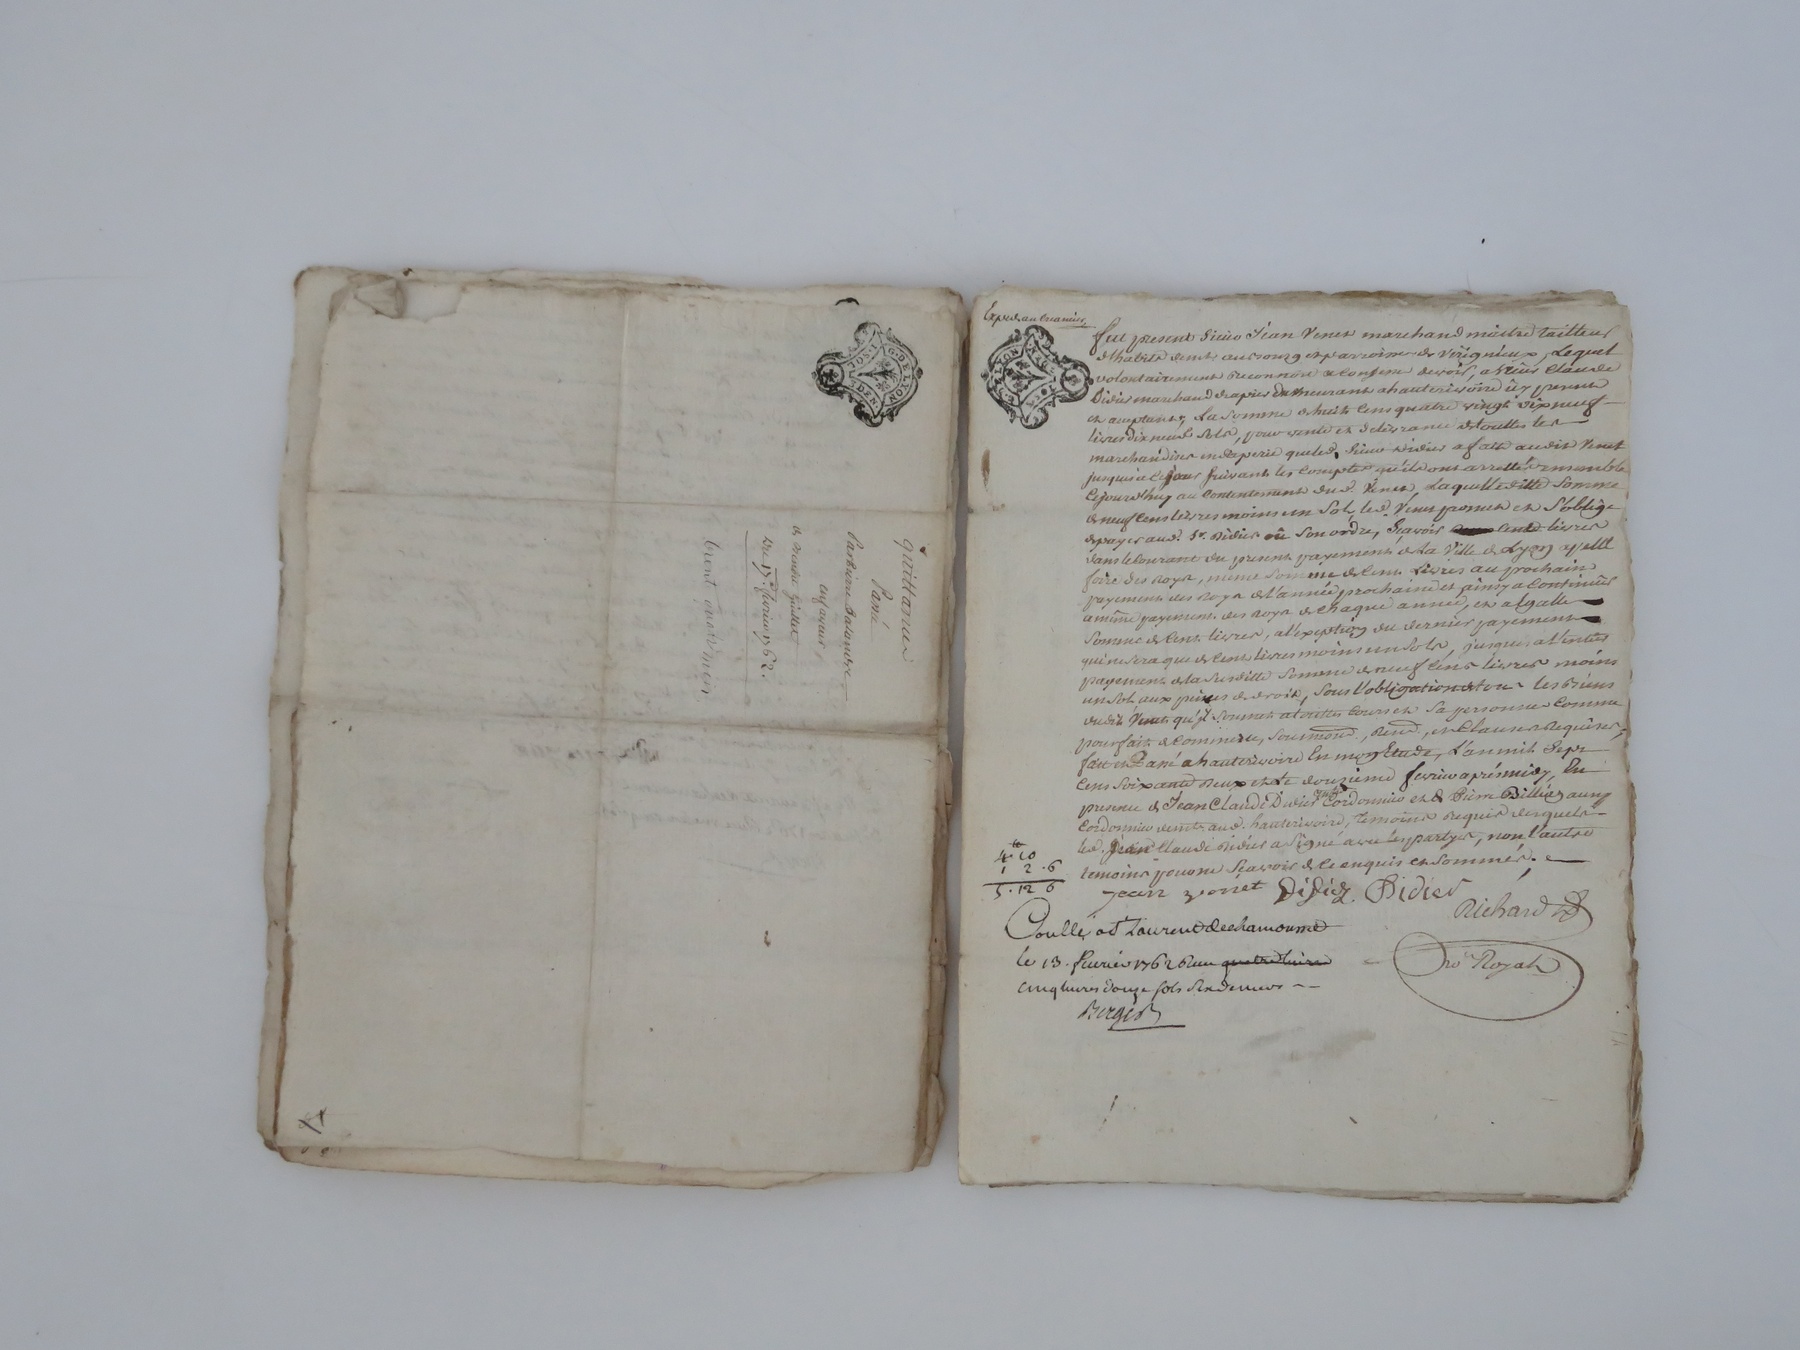 quittance
Passé
Par
en faveur
de
Du 17e fevrier 1762.
G. DE LYON
DEN
Exped. au creancier
fut present Sieur Jean Venet marchand maitre tailleur
d'habits demt. au bourg et parroisse de Verignieux, Lequel
volontairement reconnoit & confesse devoir, a sieur Claude
Didier marchand drapier demeurant a hauterivoire icy present
et acceptant, La somme de huit cens quatre vingt dixneuf
livres dixneuf sols, pour vente et delivrance de touttes les
marchandises en draperie que led. Sieur Didier a fait audit Venet
jusques à ce jour suivant les comptes qu'ils ont arrettés ensemble
cejourd'huy au contentement dud. Venet, Laquelle ditte somme
de neuf cens livres moins un sol, led. Venet promet et s'oblige
de payer aud. Sr. Didier où son ordre, sçavoir cent livres
dans le courant du present payement de la Ville de Lyon appellé
foire des Roys, même somme de cent livres au prochain
payement des Roys de l'année prochaine et ainsy a continuer
a même payement des Roys de chaque année, et a egalle
somme de cent livres, a l'exception du dernier payement
qui ne sera que de cent livres moins un sols, jusques a l'entier
payement de la susditte somme de neuf cens livres moins
un sol aux peines de droit, sous l'obligation de tous les biens
dudit Venet qu'il soumet a touttes cours et sa personne comme
pour fait de commerce, soumond, renond, et clauses requises,
fait et Passé a hauterivoire En mon Etude, L'an mil sept
cens soixante deux et le douzieme fevrier aprés midy, En
presence de Jean Claude Didier cordonnier et de Pierre Billiez aussy
cordonnier demts. aud. hauterivoire, temoins requis desquels
led. Jean Claude Didier a signé avec les partyes, non l'autre
temoins pour ne sçavoir de ce enquis et sommés.
4 10
1 2 . 6
5 . 12 6
Jean venet Didier Didier
Richard
Conllé a St Laurent de chamousset
le 13. fevrier 1762 Reçu quatre livres
cinq livres douze sols six deniers
Berger
no.re Royal